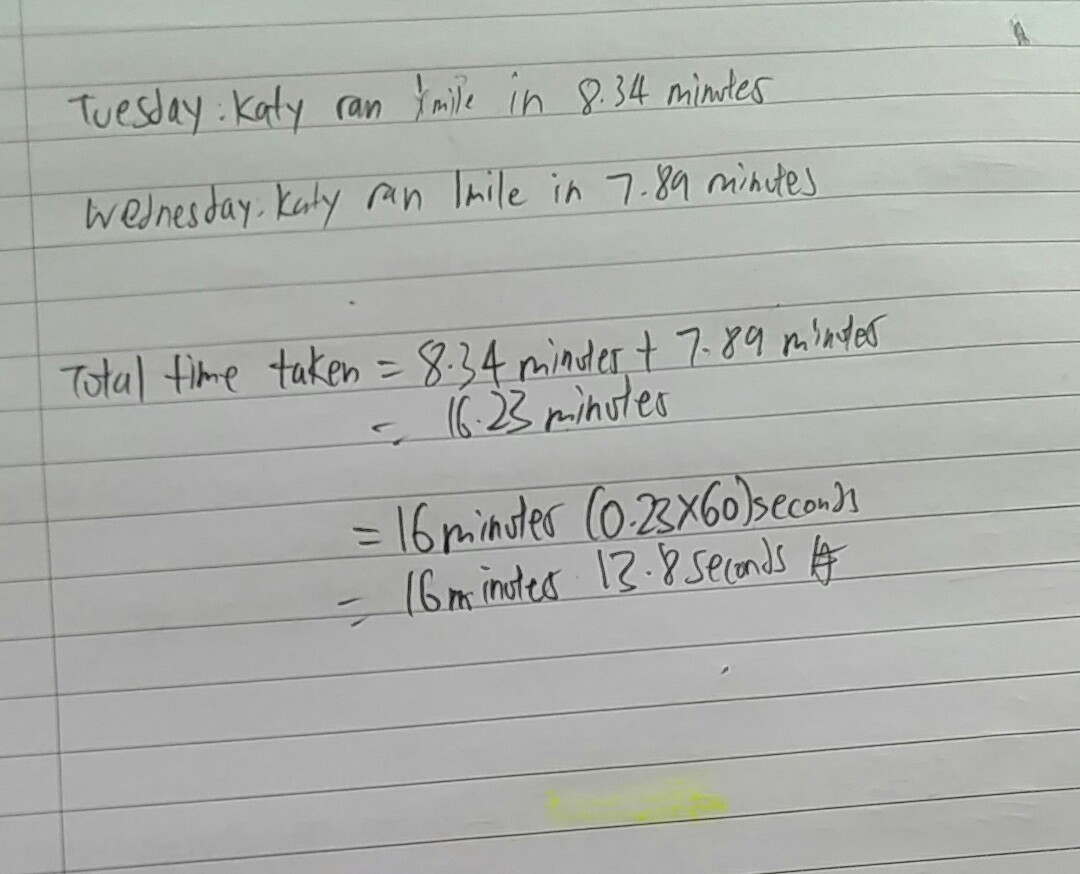 Tuesday: Katy ran 1 mile in 8.34 minutes
Wednesday: Katy ran 1mile in 7.89 minutes
Total time taken = 8.34 minutes + 7.89 minutes
= 16.23 minutes
= 16 minutes (0.23×60)seconds
= 16 minutes 13.8 seconds